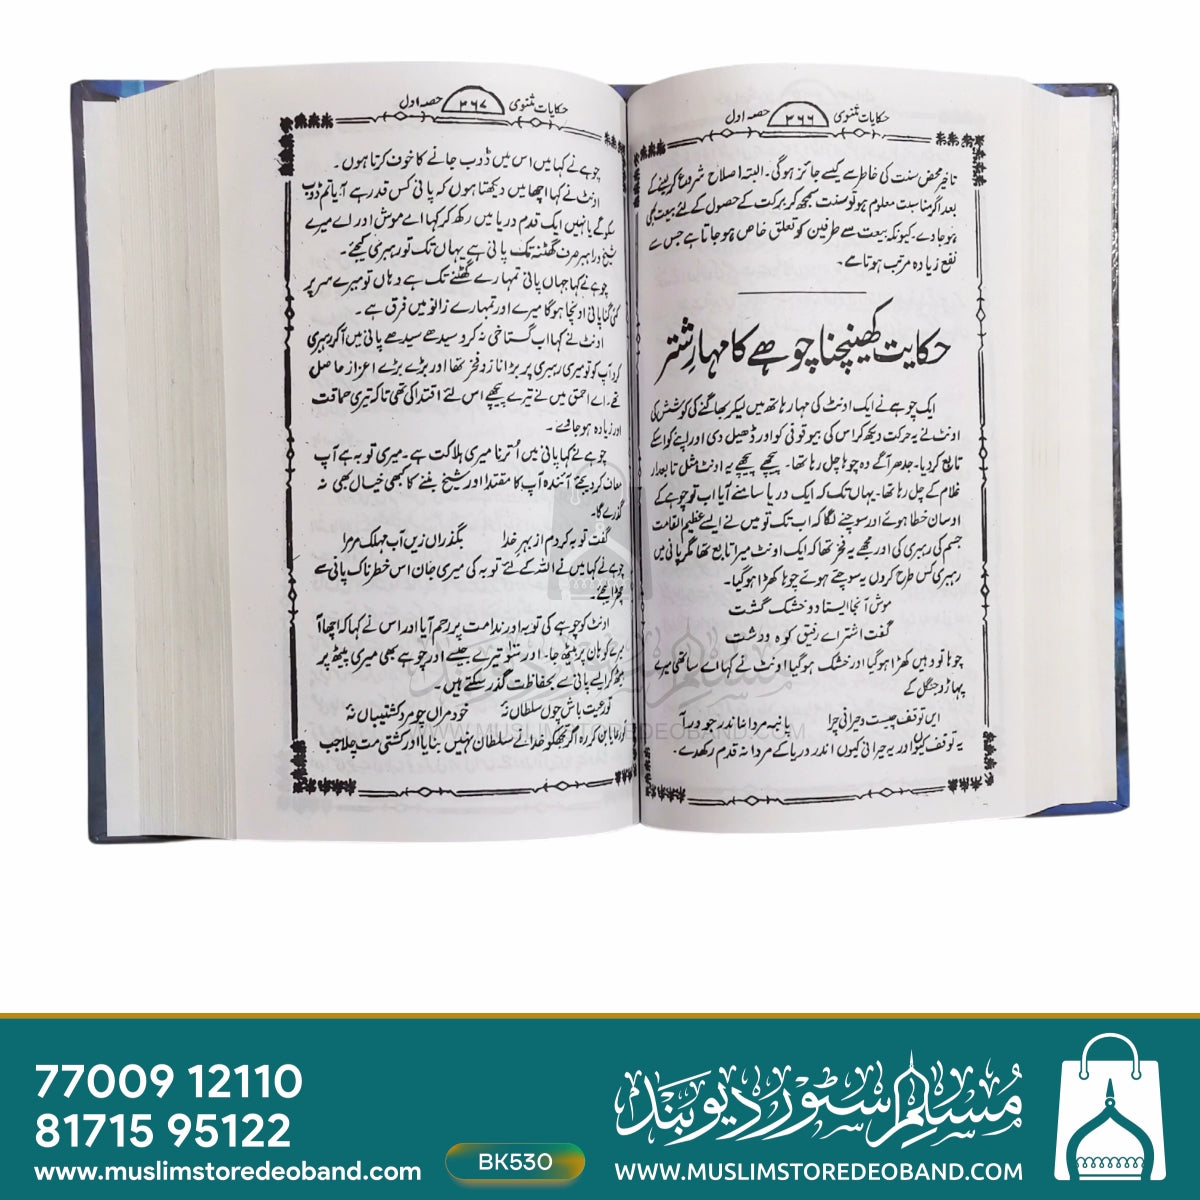 حکایات مثنوی ۳۶۶ حصہ اول
تاخیر محض سنت کی خاطر سے کیسے جائز ہوگی۔ البتہ اصلاح شروع کر لینے کے
بعد اگر مناسبت معلوم ہو تو سنت سمجھ کر برکت کے حصول کے لئے بیعت بھی
ہو جاوے۔ کیونکہ بیعت سے طرفین کو تعلق خاص ہو جاتا ہے جس سے
نفع زیادہ مرتب ہوتا ہے۔
حکایت کھینچنا چوہے کا مہار شتر
ایک چوہے نے ایک اونٹ کی مہار ہاتھ میں لیکر بھاگنے کی کوشش کی
اونٹ نے یہ حرکت دیکھ کر اس کی بیوقوفی کو اور ڈھیل دی اور اپنے کو اسکے
تابع کردیا۔ جدھر آگے وہ چوہا چل رہا تھا۔ پیچھے پیچھے یہ اونٹ مثل تابعدار
غلام کے چل رہا تھا۔ یہاں تک کہ ایک دریا سامنے آیا اب تو چوہے کے
اوسان خطا ہوئے اور سوچنے لگا کہ اب تک تو میں نے ایسے عظیم القامت
جسم کی رہبری کی اور مجھے یہ فخر تھا کہ ایک اونٹ میرا تابع تھا مگر پانی میں
رہبری کس طرح کروں یہ سوچتے ہوئے چوہا کھڑا ہوگیا۔
موش آنجا ایستادو خشک گشت
گفت اشتر اے رفیق کوہ و دشت
چوہا تو وہیں کھڑا ہوگیا اور خشک ہوگیا اونٹ نے کہا اے ساتھی میرے
پہاڑ و جنگل کے
ایں توقف چیست و حیرانی چرا پا بنہ مردانہ اندر جو در آ
یہ توقف کیوں اور یہ حیرانی کیوں اندر دریا کے مردانہ قدم رکھدے۔
حکایات مثنوی ۳۶۷ حصہ اول
چوہے نے کہا میں اس میں ڈوب جانے کا خوف کرتا ہوں۔
اونٹ نے کہا اچھا میں دیکھتا ہوں کہ پانی کس قدر ہے آیا تم ڈوب
سکو گے یا نہیں ایک قدم دریا میں رکھ کر کہا اے موش اور اے میرے
شیخ و راہبر صرف گھٹنہ تک پانی ہے یہاں تک تو رہبری کیجئے۔
چوہے نے کہا جہاں پانی تمہارے گھٹنے تک ہے وہاں تو میرے سر پر
کئی گنا پانی اونچا ہوگا میرے اور تمہارے زانو میں فرق ہے۔
اونٹ نے کہا اب گستاخی نہ کرو سیدھے سیدھے پانی میں آکر رہبری
کرو آپ کو تو میری رہبری پر بڑا ناز و فخر تھا اور بڑے بڑے اعزاز حاصل
تھے۔ اے احمق میں نے تیرے پیچھے اس لئے اقتدا کی تھی تاکہ تیری حماقت
اور زیادہ ہو جاوے۔
چوہے نے کہا پانی میں اترنا میری ہلاکت ہے۔ میری توبہ ہے آپ
معاف کر دیجئے آئندہ آپ کا مقتدا اور شیخ بننے کا کبھی خیال بھی نہ
گذرے گا۔
گفت توبہ کردم از بہر خدا بگذراں زیں آب مہلک مر مرا
چوہے نے کہا میں نے اللہ کے لئے توبہ کی میری جان اس خطرناک پانی سے
چھڑائیے۔
اونٹ کو چوہے کی توبہ اور ندامت پر رحم آیا اور اس نے کہا کہ اچھا آ
میرے کوہان پر بیٹھ جا۔ اور سو تیرے جیسے اور چوہے بھی میری پیٹھ پر
بیٹھ کر ایسے پانی سے بحفاظت گذر سکتے ہیں۔
تو رعیت باش چوں سلطاں نہ خود مراں چو مرد کشتیباں نہ
تو رعایا بن کر رہ اگر تجھکو خدا نے سلطان نہیں بنایا اور کشتی مت چلا جب
مسلم سٹور دیوبند
WWW.MUSLIMSTOREDEOBAND.COM
77009 12110
81715 95122
www.muslimstoredeoband.com
BK530
مسلم سٹور دیوبند
WWW.MUSLIMSTOREDEOBAND.COM